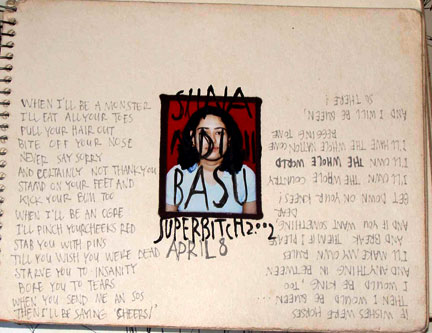 WHEN I'LL BE A MONSTER
I'LL EAT ALL YOUR TOES
PULL YOUR HAIR OUT
BITE OFF YOUR NOSE
NEVER SAY SORRY
AND CERTAINLY NOT THANKYOU
STAND ON YOUR FEET AND
KICK YOUR BUM TOO
WHEN I'LL BE AN OGRE
I'LL PINCH YOUR CHEEKS RED
STAB YOU WITH PINS
TILL YOU WISH YOU WERE DEAD
STARVE YOU TO INSANITY
BORE YOU TO TEARS
WHEN YOU SEND ME AN SOS
THEN I'LL BE SAYING 'CHEERS!'
BASU
SUPERBITCH 2002
APRIL 8
IF WISHES WERE HORSES
THEN I WOULD BE QUEEN
I WOULD BE KING, TOO,
AND ANYTHING IN BETWEEN
I'LL MAKE MY OWN RULES
AND BREAK THEM IF I PLEASE
AND IF YOU WANT SOMETHING
DEAR,
GET DOWN ON YOUR KNEES
I'LL OWN THE WHOLE COUNTRY
I'LL OWN THE WHOLE WORLD
I'LL HAVE THE WHOLE NATION COME
BEGGING TO ME
AND I WILL BE QUEEN,
SO THERE!